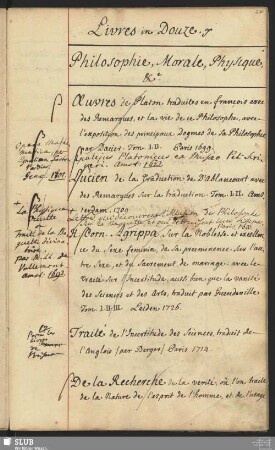 Livres in Douze.
Philosophie, Morale, Physique,
&c
Œuvres de Platon traduites en françois avec
des Remarques, et la vie de ce Philosophe, avec
l'exposition des principaux Dogmes de sa Philosophie
par Dacier. Tom. I.II. Paris 1699.
Lucien de la Traduction de D'ablancourt avec
des Remarques sur la traduction Tom. I-II. Ams-
terdam. 1701.
H. Corn. Agrippa sur la Noblesse et excellen-
ce du Sexe feminin, de sa preeminence sur l'au-
tre Sexe, et du Sacrement de mariage. avec le
traité sur l'incertitude, aussi bien que la vanité
des Sciences et des Arts, traduit par Gueudeville
Tom. I-II-III. Leiden. 1726.
Traité de l'Incertitude des Sciences traduit de-
l'Anglois (par Berger) Paris 1714
De la Recherche de la verité, où l'on traite
de la Nature de l'esprit de l'homme, et de l'usage
La Physique
occulte
ou
Traité de la Ba-
guette divina-
toire
par M. L. L. de
Vallemont
Amst. 1693.
SLUB
Wir führen Wissen.